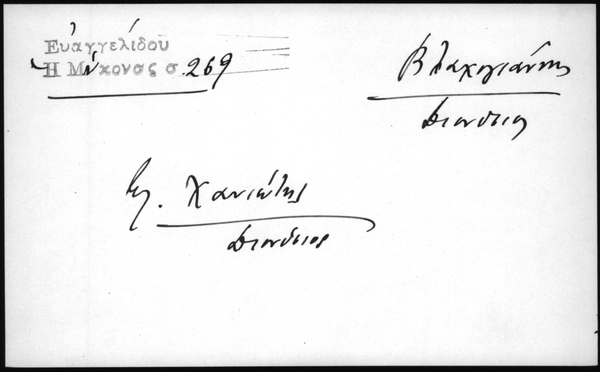 Εὐαγγελίδου
Ἡ Μύκονος σ. 269
Βλαχογιάννης
Διονύσιος
Βλ. Χανιώτης
Διονύσιος